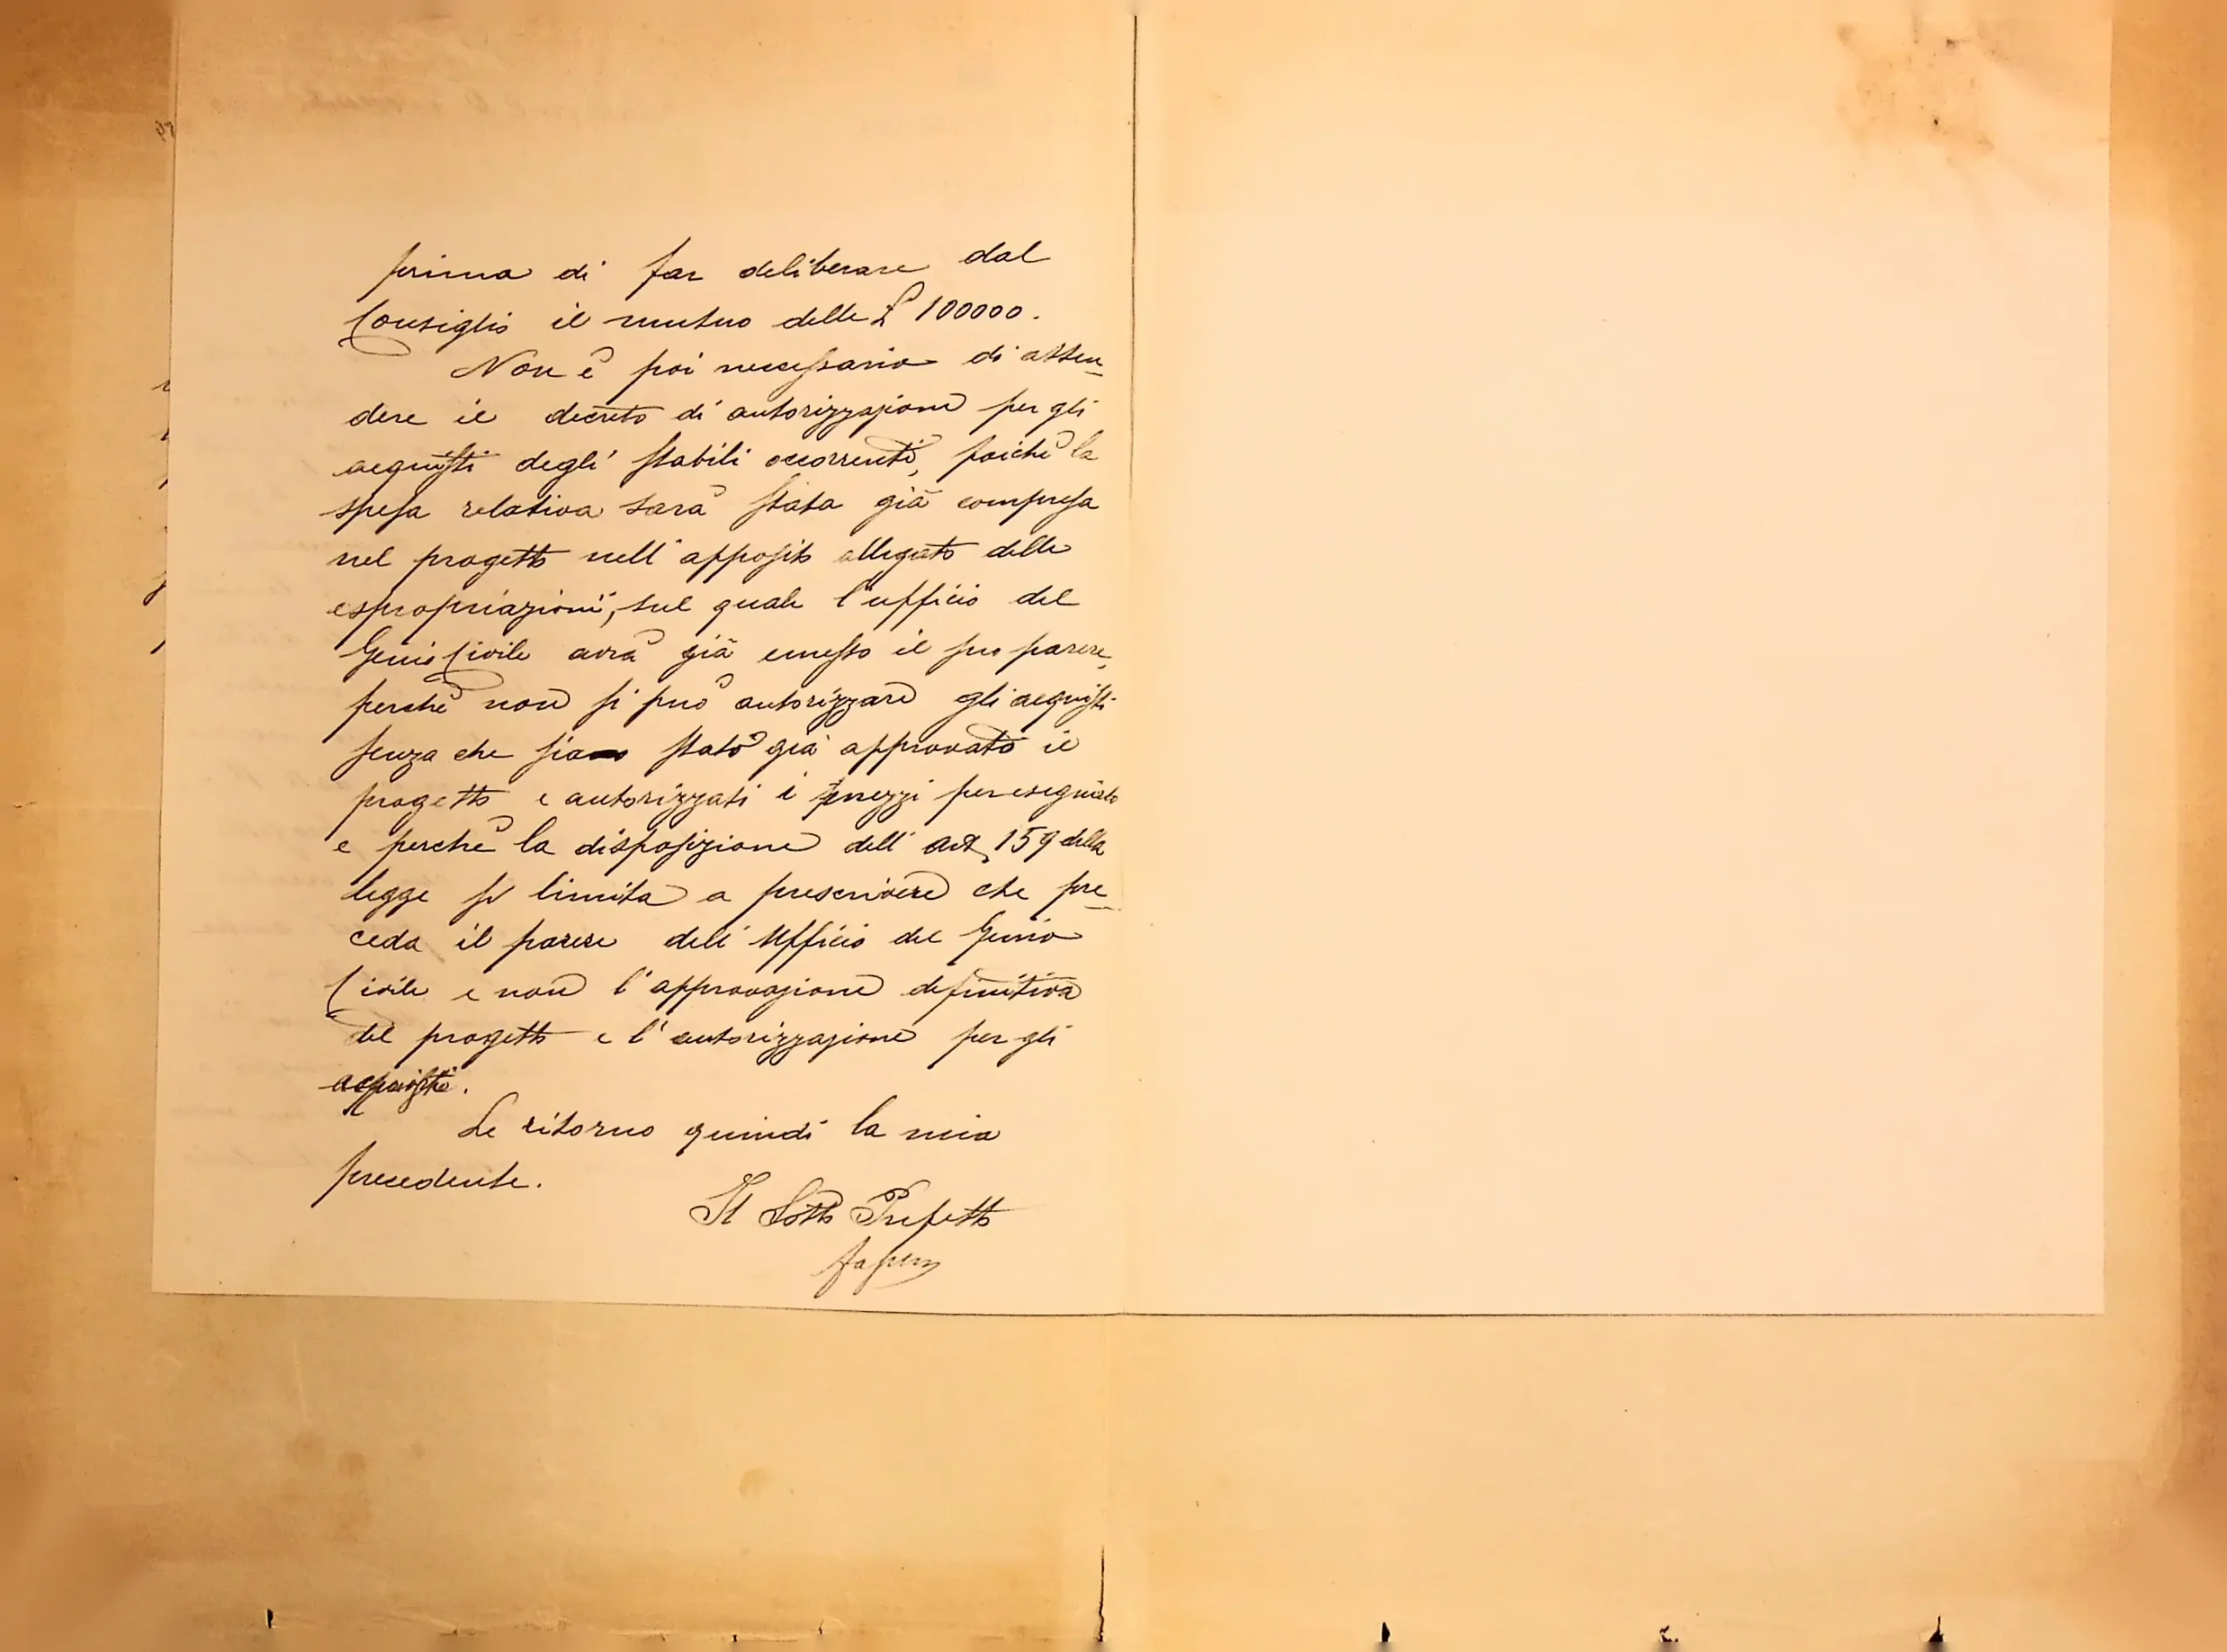 prima di far deliberare dal
Consiglio il mutuo delle £ 100000.
Non è poi necessario di atten-
dere il decreto di autorizzazione per gli
acquisti degli stabili occorrenti, poichè la
spesa relativa sarà stata già compresa
nel progetto nell'apposito allegato delle
espropriazioni, sul quale l'ufficio del
Genio Civile avrà già emesso il suo parere,
perchè non si può autorizzare gli acquisti
senza che sia stato già approvato il
progetto e autorizzati i prezzi per eseguirlo
e perchè la disposizione dell'art. 159 della
legge si limita a prescrivere che pre-
ceda il parere dell'Ufficio del Genio
Civile e non l'approvazione definitiva
del progetto e l'autorizzazione per gli
acquisti.
Le ritorno quindi la mia
precedente.
Il Sotto Prefetto